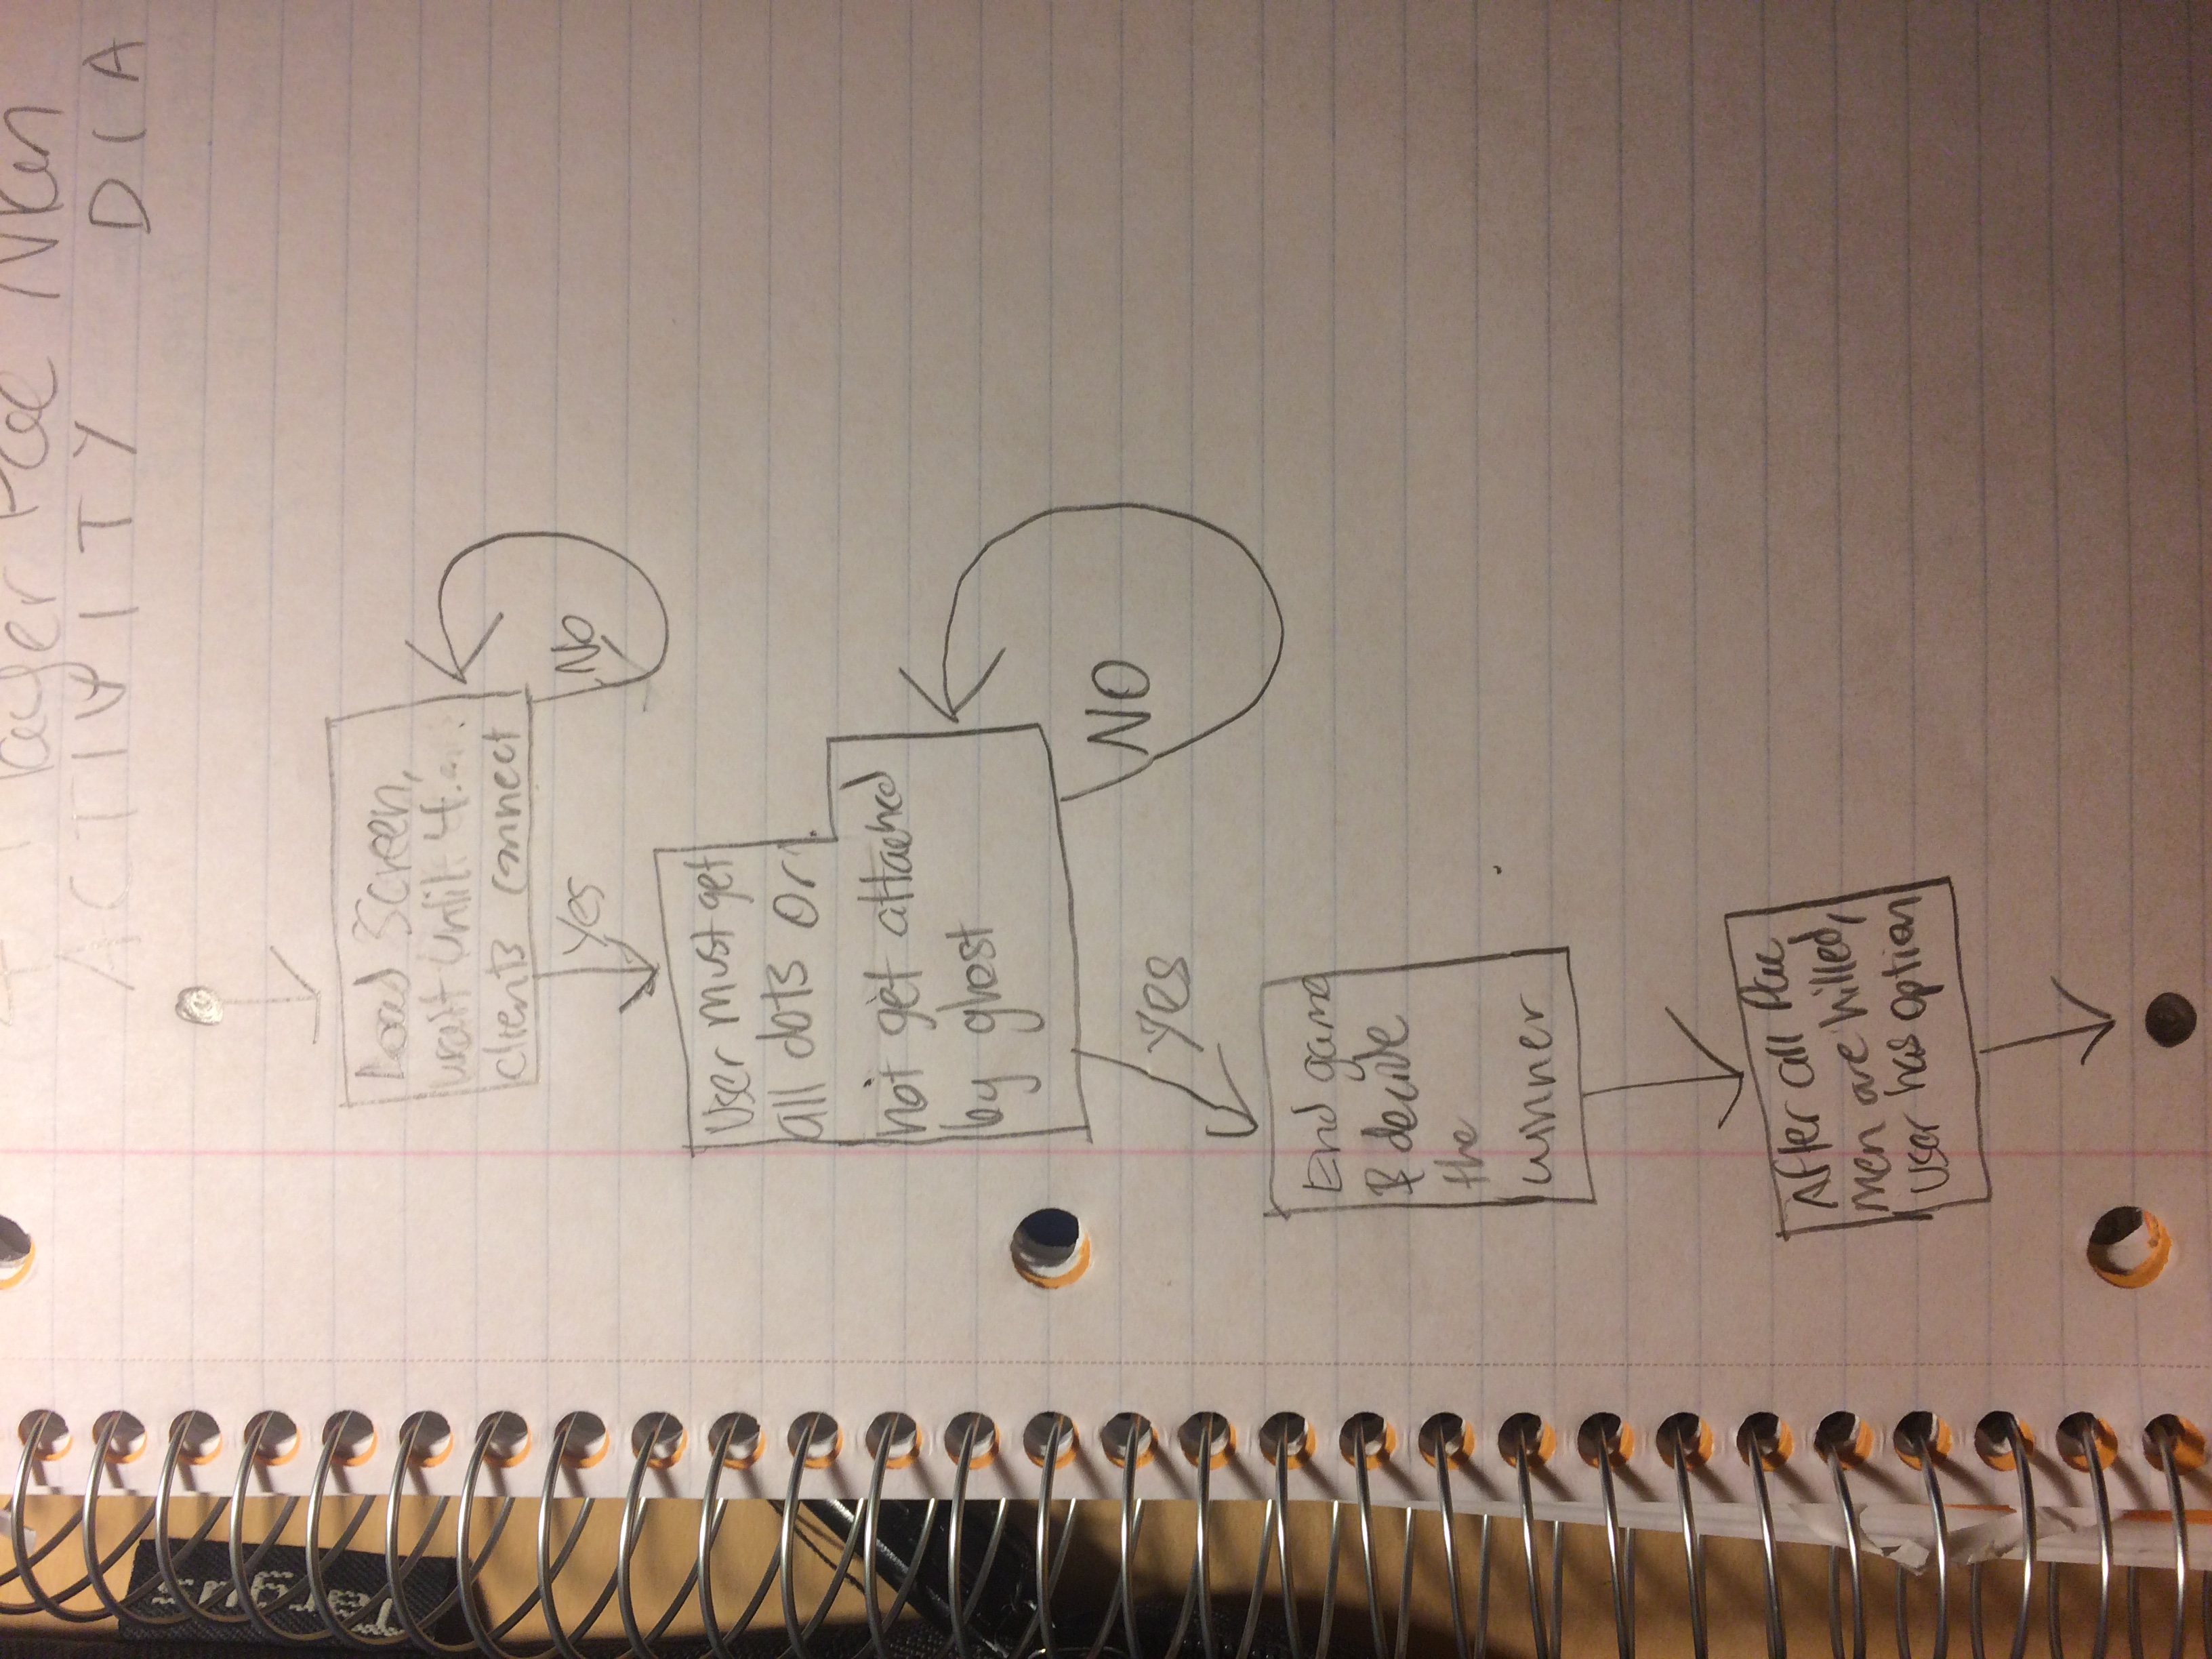 4 Player Pac Man
ACTIVITY DIA
Load Screen,
wait until 4
clients connect
Yes
No
User must get
all dots or
not get attached
by ghost
NO
Yes
End game
& decide
the
winner
After all Pac
men are killed,
User has option